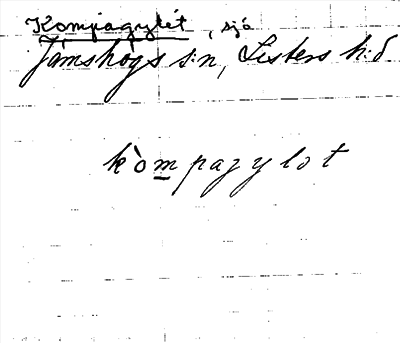 Kompagylet, sjö
Jämshögs s:n, Listers h:d
kòm̲pagylot